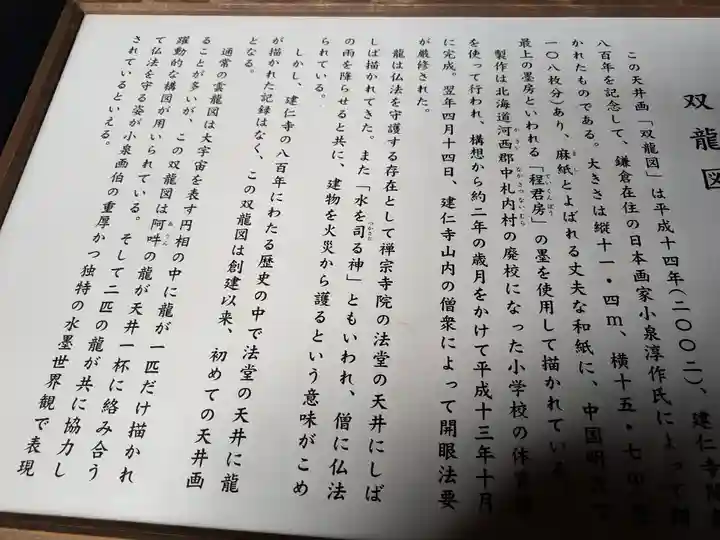 双龍図
この天井画「双龍図」は平成十四年(二〇〇二)、建仁寺
八百年を記念して、鎌倉在住の日本画家小泉淳作氏によって
かれたものである。大きさは縦十一・四m、横十五・七m
一〇八枚分)あり、麻紙とよばれる丈夫な和紙に、中国明
最上の墨房といわれる「程君房」の墨を使用して描かれている
製作は北海道河西郡中札内村の廃校になった小学校の体育館
を使って行われ、構想から約二年の歳月をかけて平成十三年十月
に完成。翌年四月十四日、建仁寺山内の僧衆によって開眼法要
が厳修された。
龍は仏法を守護する存在として禅宗寺院の法堂の天井にしば
しば描かれてきた。また「水を司る神」ともいわれ、僧に仏法
の雨を降らせると共に、建物を火災から護るという意味がこめ
られている。
しかし、建仁寺の八百年にわたる歴史の中で法堂の天井に龍
が描かれた記録はなく、この双龍図は創建以来、初めての天井画
となる。
通常の雲龍図は大宇宙を表す円相の中に龍が一匹だけ描かれ
ることが多いが、この双龍図は阿吽の龍が天井一杯に絡み合う
躍動的な構図が用いられている。そして二匹の龍が共に協力し
て仏法を守る姿が小泉画伯の重厚かつ独特の水墨世界観で表現
されているといえる。